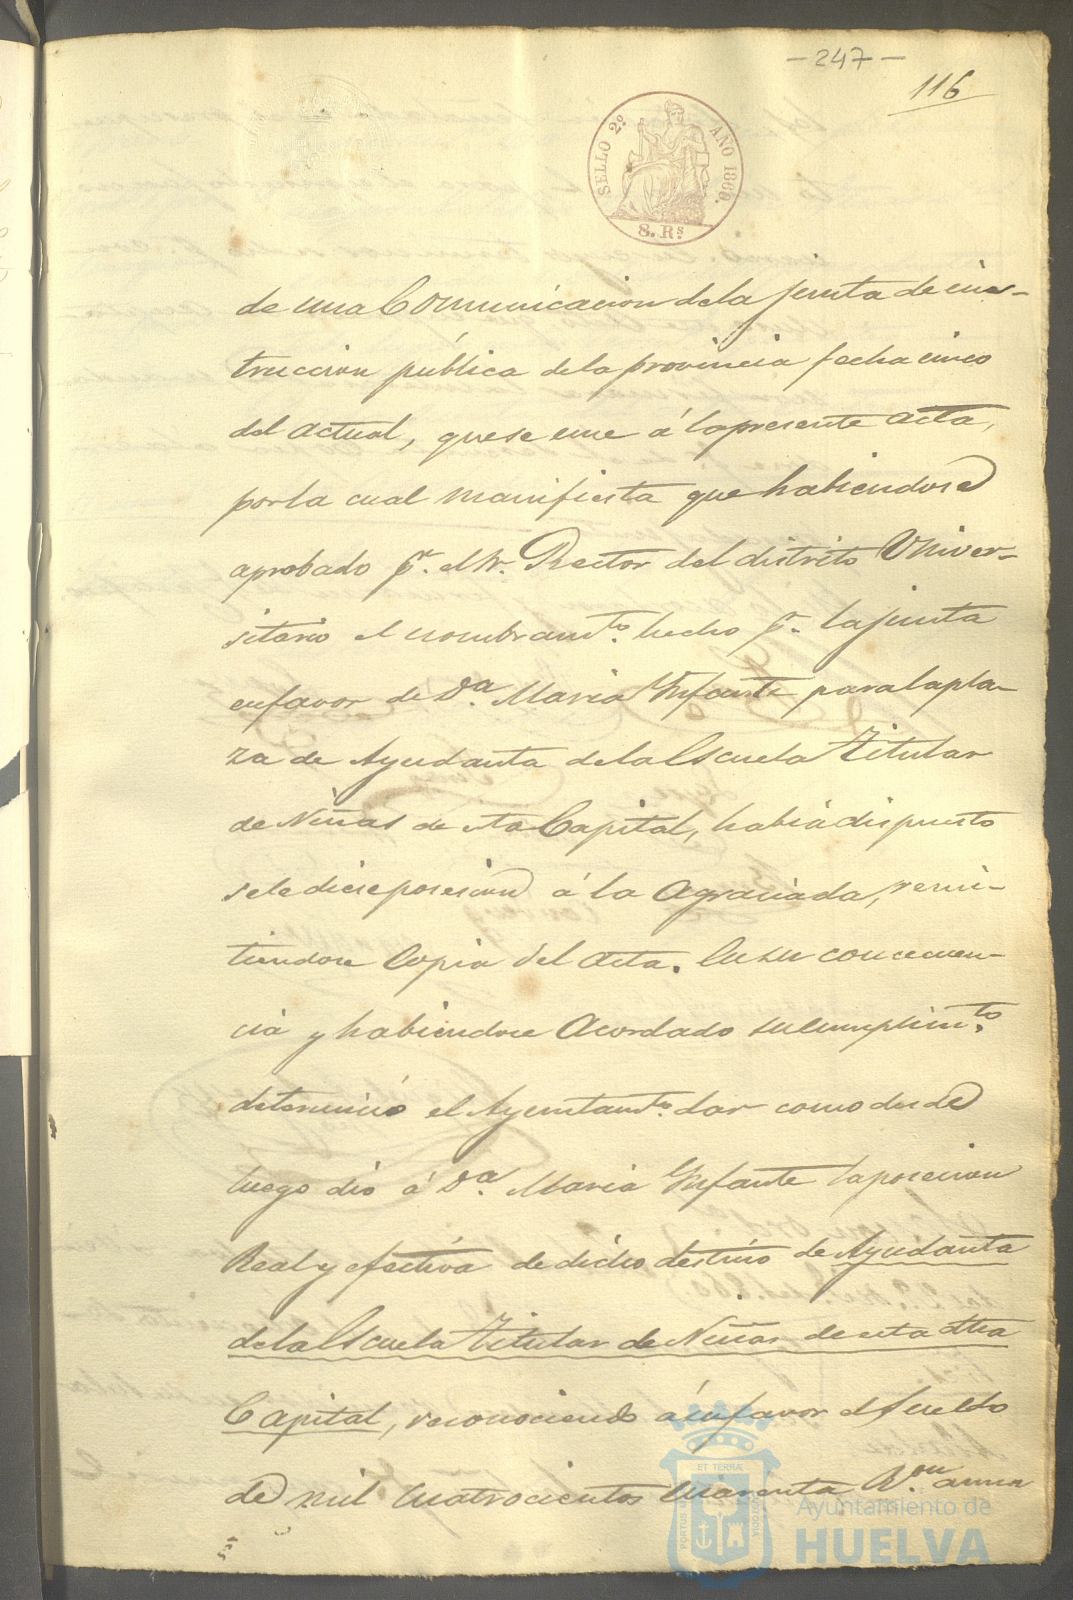 - 247 -
116
SELLO 2º AÑO 1860.
8. Rs
de una Comunicacion de la junta de ins-
truccion pública de la provincia fecha cinco
del actual, que se une á la presente acta,
por la cual manifiesta que habiendose
aprobado pr. el Sr. Rector del distrito Univer-
sitario el nombramto. hecho pr. la junta
en favor de Da. Maria Infante para la pla-
za de Ayudanta de la Escuela Titular
de Niñas de esta Capital, habia dispuesto
se le diese posesion á la agraciada, remi-
tiendose copia del acta. En su concecuen-
cia y habiendose acordado su cumplimto.
determinó el Ayuntamto. dar como desde
luego dió á Da. Maria Infante la posecion
Real y efectiva de dicho destino de Ayudanta
de la Escuela Titular de Niñas de esta dha
Capital, reconociendo á su favor el sueldo
de mil cuatrocientos cuarenta Rs. on anua
ET TERRÆ
PORTUS MARIS
CUSTODIA
Ayuntamiento de
HUELVA